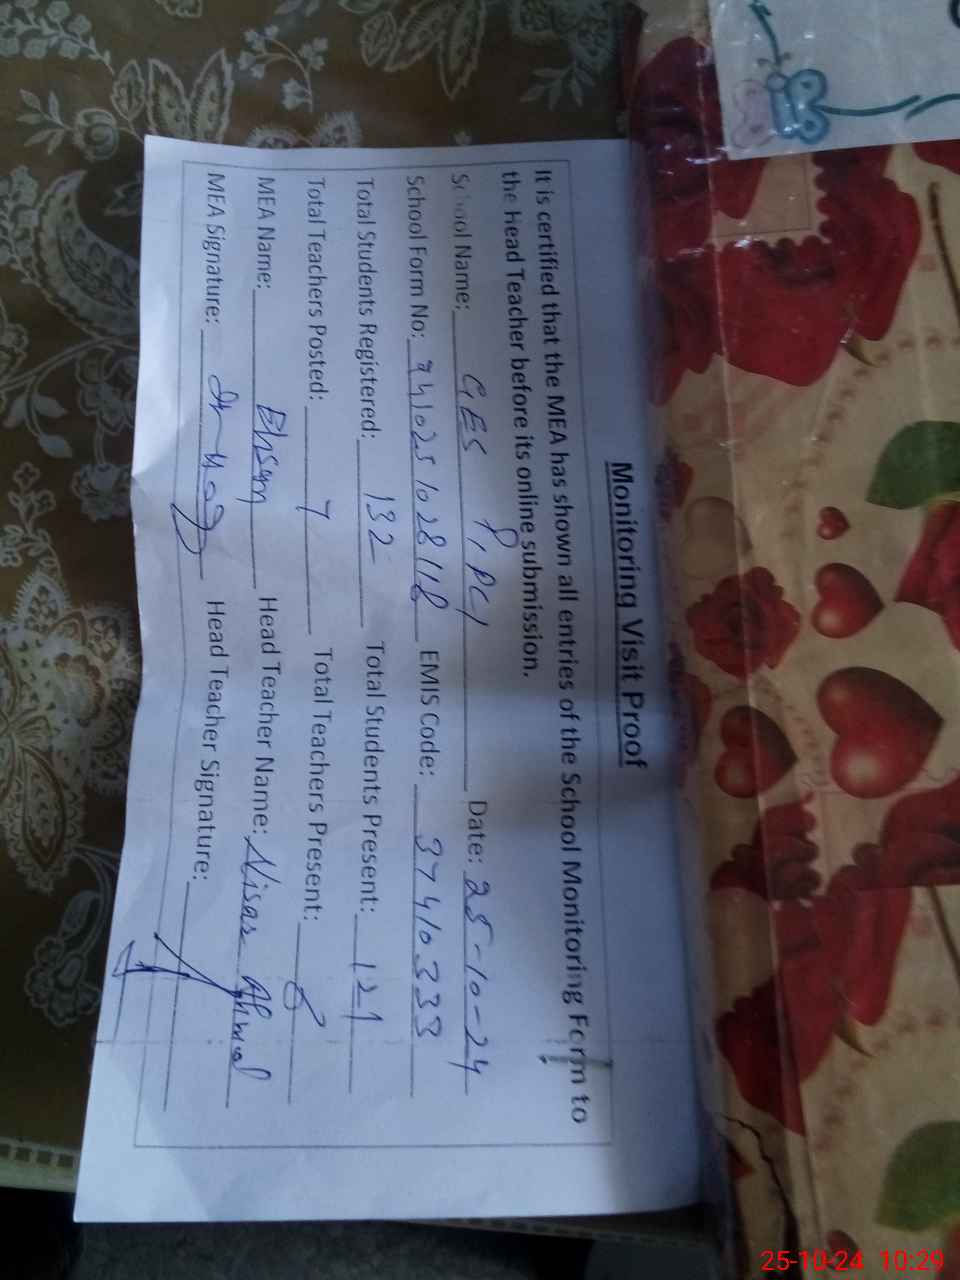 Monitoring Visit Proof
It is certified that the MEA has shown all entries of the School Monitoring Form to
the Head Teacher before its online submission.
School Name: GES Date: 25-10-24
School Form No: EMIS Code: 37410333
Total Students Registered: 132 Total Students Present: 121
Total Teachers Posted: 7 Total Teachers Present:
MEA Name: Ehsan Head Teacher Name: Nisar Ahmad
MEA Signature: Head Teacher Signature:
25-10-24 10:29